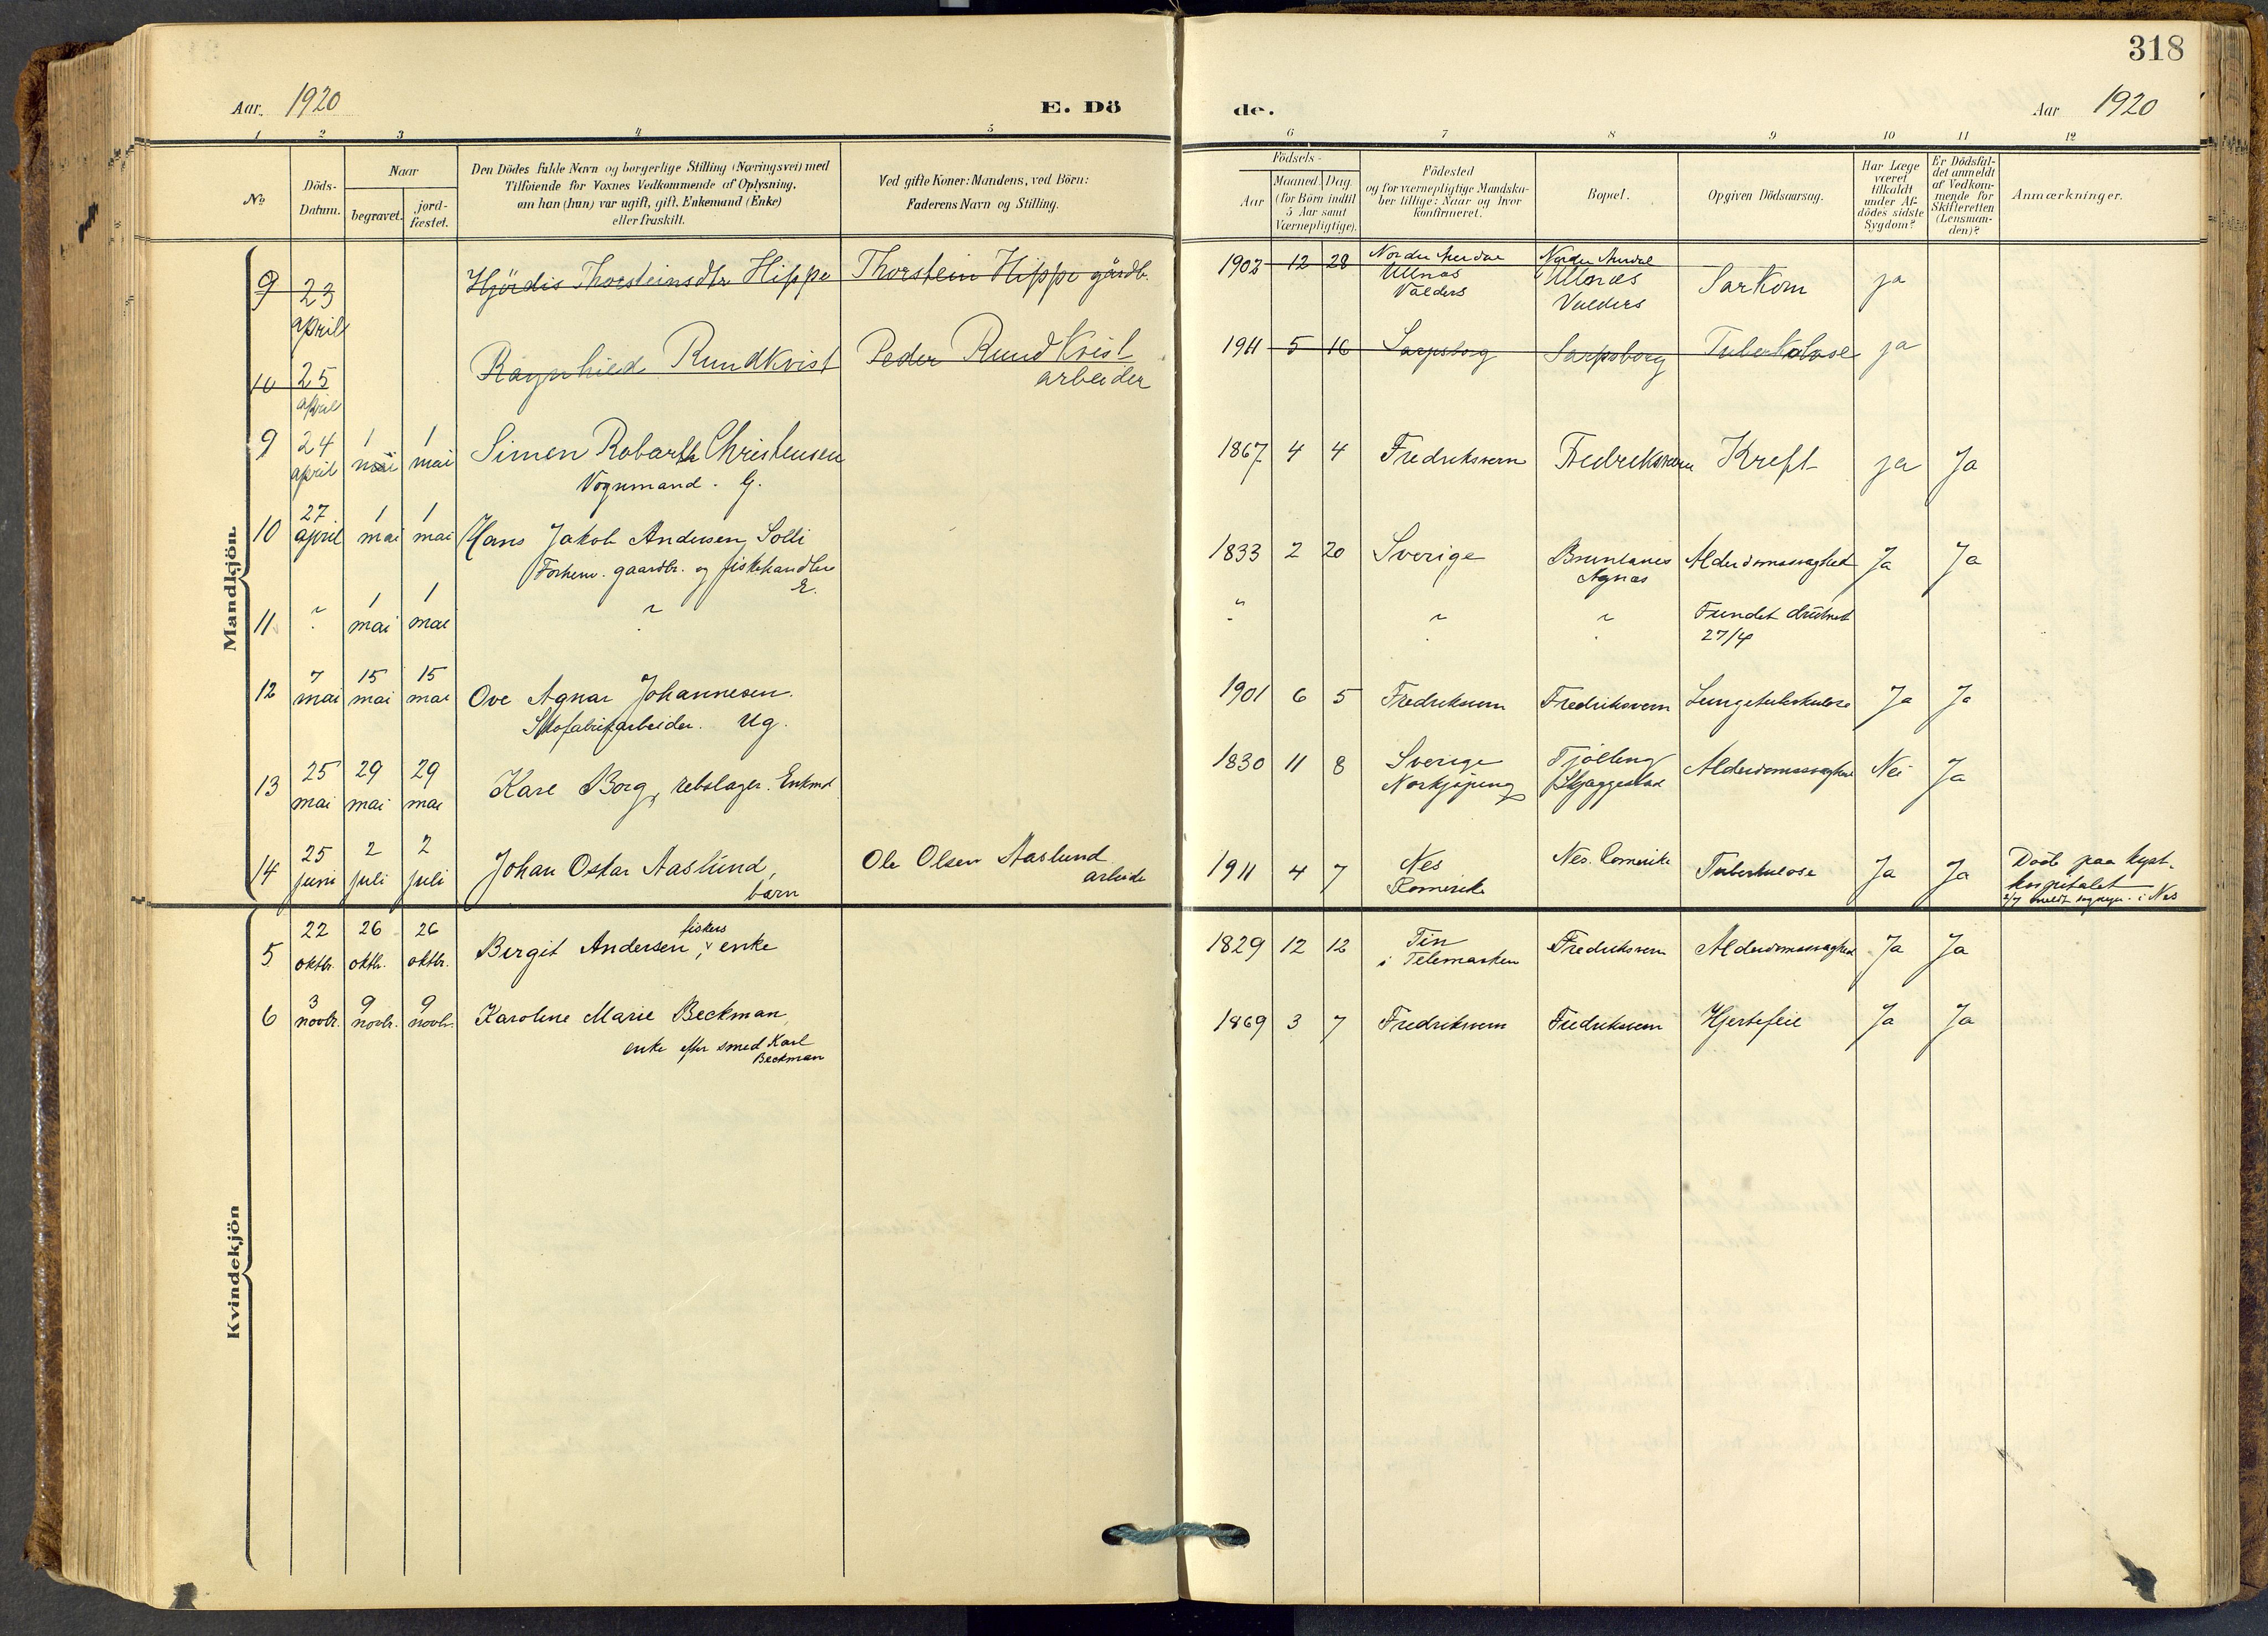 318
Aar. 1920
E. Dö
de.
Aar 1920
1 2 3 4 5 6 7 8 9 10 11 12
No
Döds-
Datum.
Naar
begravet.
jord-
fæstet.
Den Dödes fulde Navn og borgerlige Stilling (Næringsvei) med
Tilföiende for Voxnes Vedkommende af Oplysning,
om han (hun) var ugift, gift, Enkemand (Enke)
eller fraskilt.
Ved gifte Koner: Mandens, ved Börn:
Faderens Navn og Stilling.
Födsels-
Aar
Maaned. Dag.
(for Börn indtil
5 Aar samt
Værnepligtige).
Födested
og for værnepligtige Mandska-
ber tillige: Naar og hvor
konfirmeret.
Bopæl.
Opgiven Dödsaarsag.
Har Læge
været
tilkaldt
under Af-
dödes sidste
Sygdom?
Er Dödsfal-
det anmeldt
af Vedkom-
mende for
Skifteretten
(Lensman-
den)?
Anmærkninger.
Mandkjön
9 23 Hjördis Thorsteinsdtr Hippe Thorstein Hippe gårdb. 1902 12 28 Nordre Aurdal Nordre Aurdal Sarkom ja
april Ulnæs Ulnæs
Valders Valders
10 25 Ragnhild Rundkvist Peder Rundkvist 1911 5 16 Sarpsborg Sarpsborg Tuberkulose ja
april arbeider
9 24 1 1 Simen Robarth Christensen 1867 4 4 Fredriksvern Fredriksvern Kreft ja Ja
april mai mai Vognmand. G.
10 27 1 1 Hans Jakob Andersen Solli 1833 2 20 Sverige Brunlanes Alderdomssvaghed Ja Ja
april mai mai Forhenv. gaardbr. og fiskehandler Agnæs
E.
11 1 1 Fundet druknet
mai mai 27/4
12 7 15 15 Ove Agnar Johannesen. 1901 6 5 Fredriksvern Fredriksvern Lungetuberkulose Ja Ja
mai mai mai Skofabrikarbeider. Ug.
13 25 29 29 Karl Borg, rebslager. Enkmd 1830 11 8 Sverige Tjølling Alderdomssvaghed Nei Ja
mai mai mai Norkjøping Skjaggestad
14 25 2 2 Johan Oskar Aaslund, Ole Olsen Aaslund 1911 4 7 Nes Nes. Romerike Tuberkulose Ja Ja Døde paa kyst-
juni juli juli barn arbeide Romerike hospitalet
meldt sogнepr. i Nes
Kvindekjön
5 22 26 26 Birgit Andersen, fiskers enke 1829 12 12 Tin Fredriksvern Alderdomssvaghed Ja Ja
oktbr. oktbr. oktbr. i Telemarken
6 3 9 9 Karoline Marie Beckman, 1869 3 7 Fredriksvern Fredriksvern Hjertefeil Ja Ja
novbr. novbr. novbr. enke efter smed Karl
Beckman